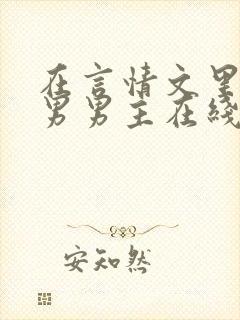 在言情文里
男男主在线
安知然